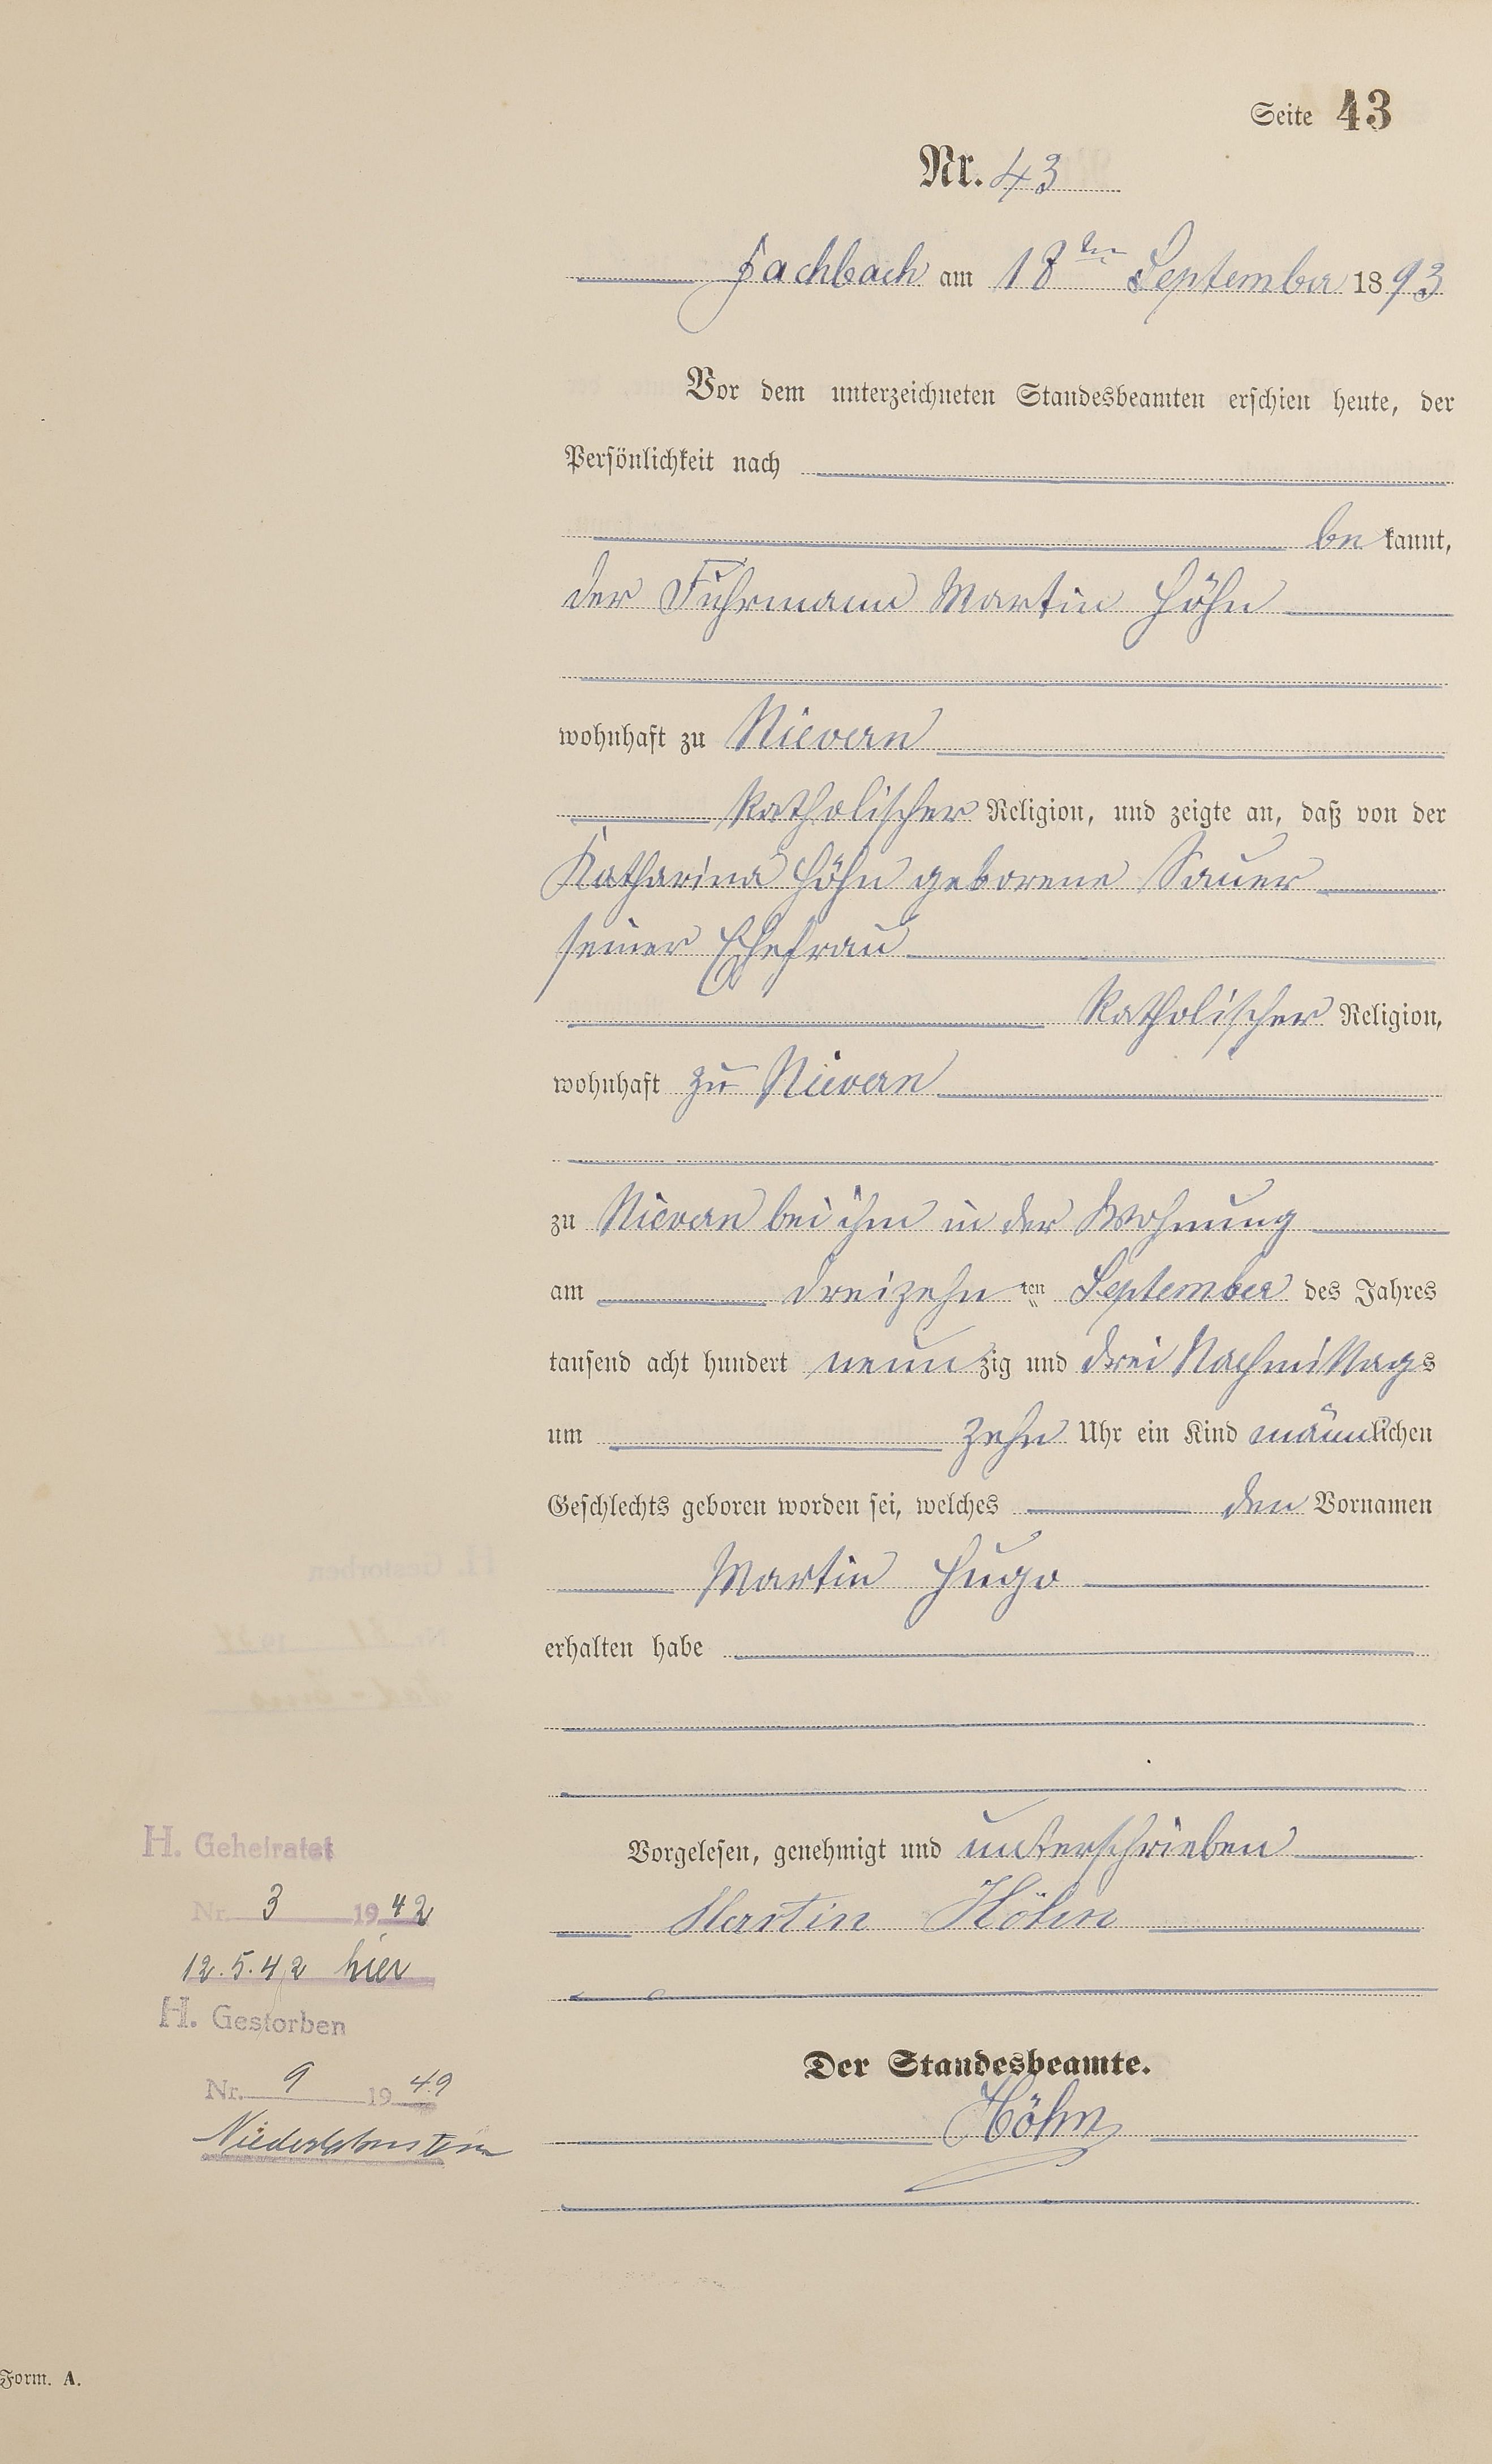 Seite 43
Nr. 43
Fachbach am 18ten September 1893
Vor dem unterzeichneten Standesbeamten erschien heute, der
Persönlichkeit nach
be kannt,
der Fuhrmann Martin Höhn
wohnhaft zu Nievern
katholischer Religion, und zeigte an, daß von der
Katharina Höhn geborene Sauer
seiner Ehefrau
katholischer Religion,
wohnhaft zu Nievern
zu Nievern bei ihm in der Wohnung
am dreizehnten September des Jahres
tausend acht hundert neunzig und drei Nachmittags
um zehn Uhr ein Kind männlichen
Geschlechts geboren worden sei, welches den Vornamen
Martin Hugo
erhalten habe
Vorgelesen, genehmigt und unterschrieben
Martin Höhn
Der Standesbeamte.
Höhn
H. Geheiratet
Nr. 3 1942
12.5.42 hier
H. Gestorben
Nr. 9 1949
Niederlahnstein
Form. A.